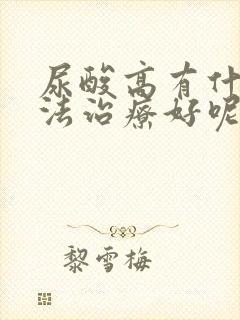 尿酸高有什
法治疗好呢
黎雪梅